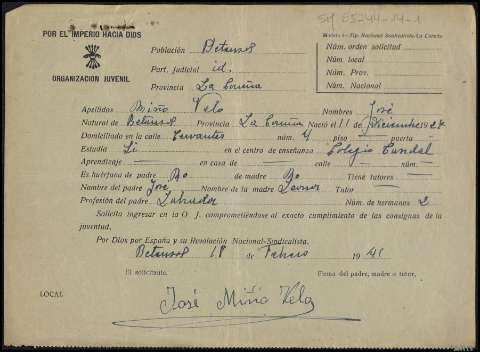 POR EL IMPERIO HACIA DIOS
ORGANIZACION JUVENIL
Población Betanzos
Part. judicial id.
Provincia La Coruña
Modelo 1.-Tip. Nacional Sindicalista-La Coruña
Núm. orden solicitud
Núm. local
Núm. Prov.
Núm. Nacional
Apellidos Miño Velo Nombres José
Natural de Betanzos Provincia La Coruña Nació el 11 de Diciembre 1927
Domiciliado en la calle Cervantes núm. 4 piso 2 puerta
Estudia Si en el centro de enseñanza Colegio
Aprendizaje en casa de calle núm.
Es huérfano de padre No de madre No Tiene tutores
Nombre del padre José Nombre de la madre Leonor Tutor
Profesión del padre Labrador Núm. de hermanos 2
Solicita ingresar en la O J. comprometiéndose al exacto cumplimiento de las consignas de la
juventud.
Por Dios por España y su Revolución Nacional-Sindicalista.
Betanzos 18 de Febrero 1941
El solicitante. Firma del padre, madre o tutor,
LOCAL
José Miño Velo